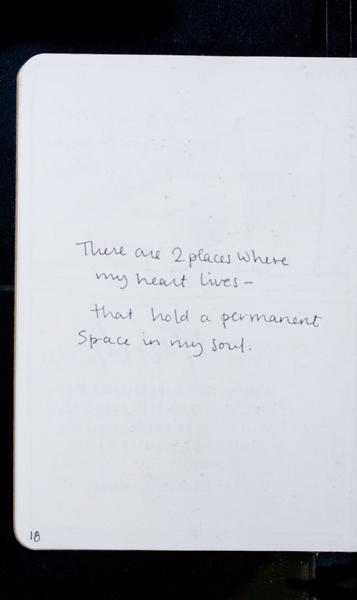 There are 2 places where
my heart lives –
that hold a permanent
Space in my soul.
18